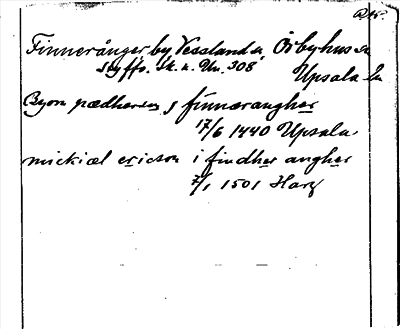 Finneränger by, Vessland sn Örbyhus hd
Upsala län
Byorn pædherson j finnerangher
17/6 1440 Upsala.
mickiæl ericson i findher angher
7/1 1501 Harg